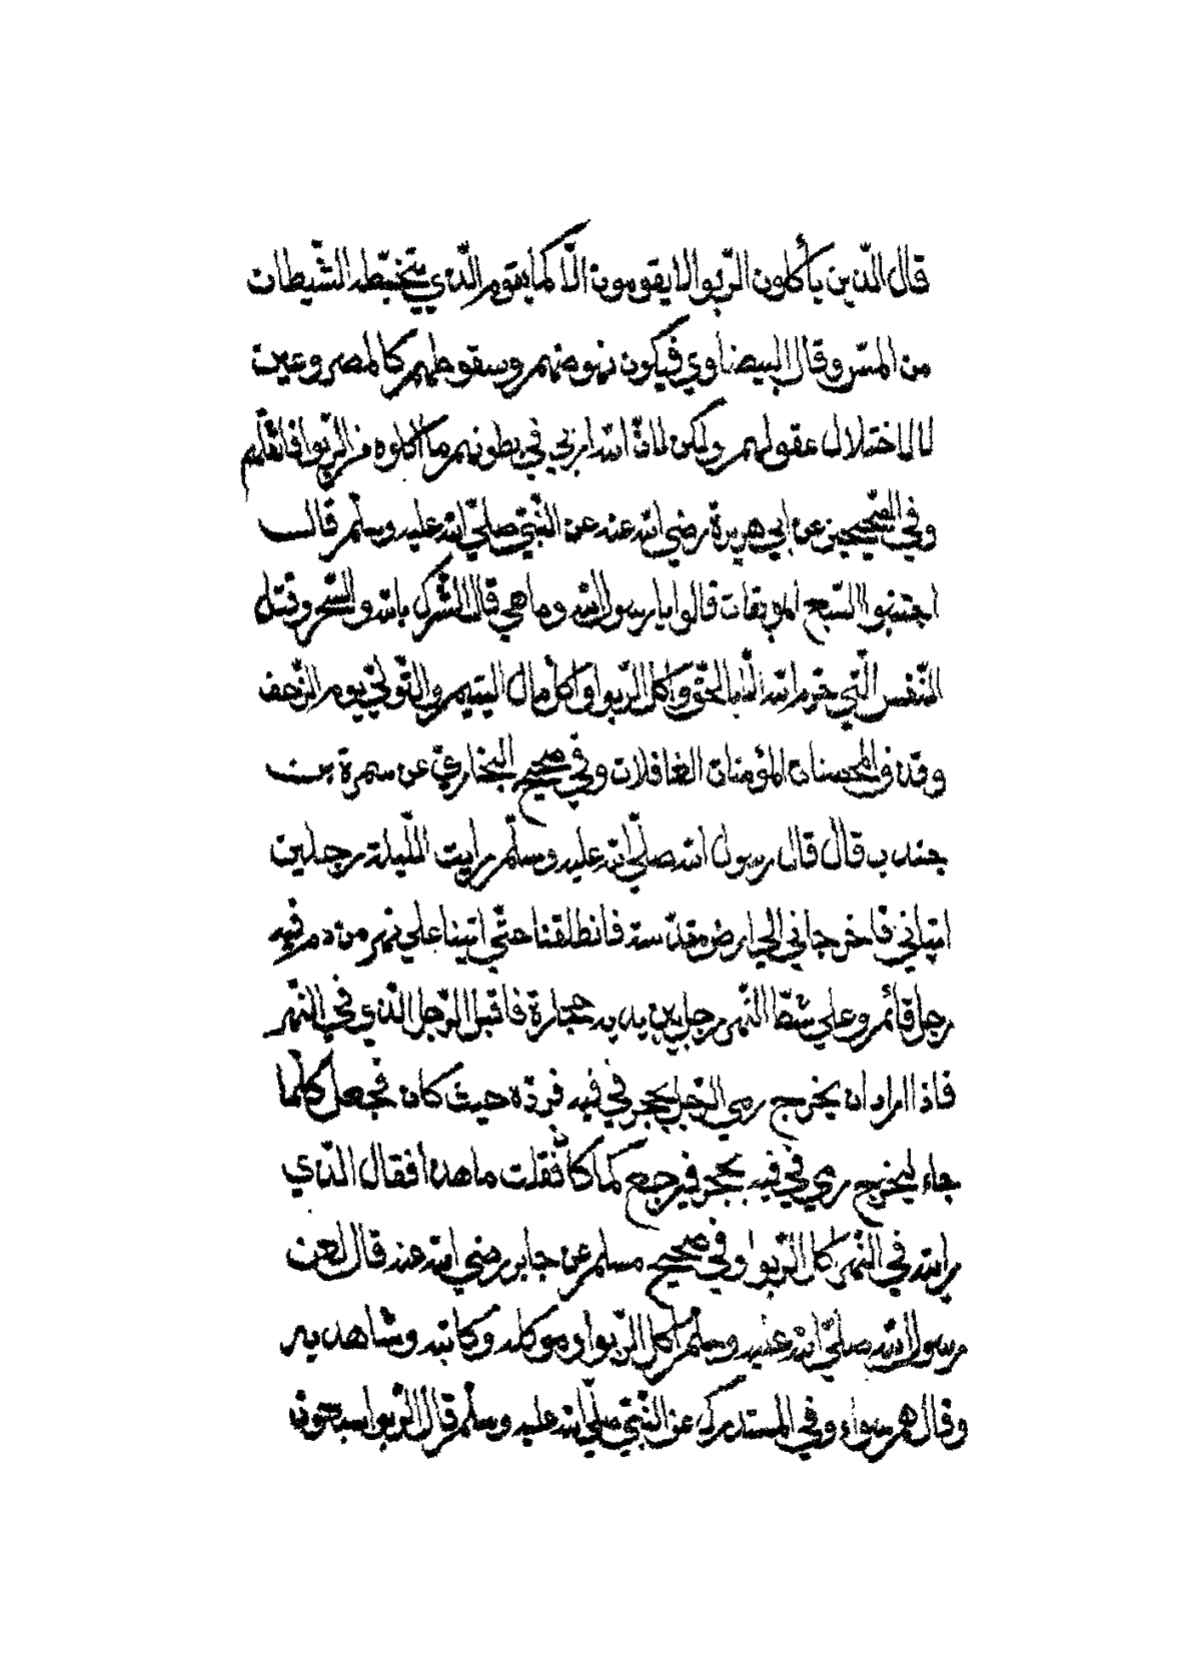 قال الّذين يأكلون الرّبوا لا يقومون الّا كما يقوم الّذي يتخبّطه الشّيطان
من المسّ وقال البيضاوي فيكون نهوضهم وسقوطهم كالمصروعين
لا لاختلال عقولهم ولكن لانّ الله اربي في بطونهم ما اكلوه من الرّبوا فاثقلهم
وفي الصّحيحين عن ابي هريرة رضي الله عنه عن النّبيّ صلّي الله عليه وسلّم قال
اجتنبوا السّبع الموبقات قالوا يا رسول الله وما هي قال الشّرك بالله والسّحر وقتل
النّفس الّتي حرّم الله الّا بالحقّ وأكل الرّبوا وأكل مال اليتيم والتّولّي يوم الزّحف
وقذف المحصنات المؤمنات الغافلات وفي صحيح البخاريّ عن سمرة بن
جندب قال قال رسول الله صلّي الله عليه وسلّم رايت اللّيلة رجلين
اتياني فاخرجاني الي ارض مقدّسة فانطلقنا حتّي اتينا علي نهر من دم فيه
رجل قائم وعلي شطّ النّهر رجل بين يديه حجارة فاقبل الرّجل الّذي في النّهر
فاذا اراد ان يخرج رمي الرّجل بحجر في فيه فردّه حيث كان فجعل كلّما
جاء ليخرج رمي في فيه بحجر فيرجع كما كان فقلت ما هذا فقال الّذي
رايته في النّهر اكل الرّبوا وفي صحيح مسلم عن جابر رضي الله عنه قال لعن
رسول الله صلّي الله عليه وسلّم اكل الرّبوا وموكله وكاتبه وشاهديه
وقال هم سواء وفي المستدرك عن النّبيّ صلّي الله عليه وسلّم قال الرّبوا سبعون